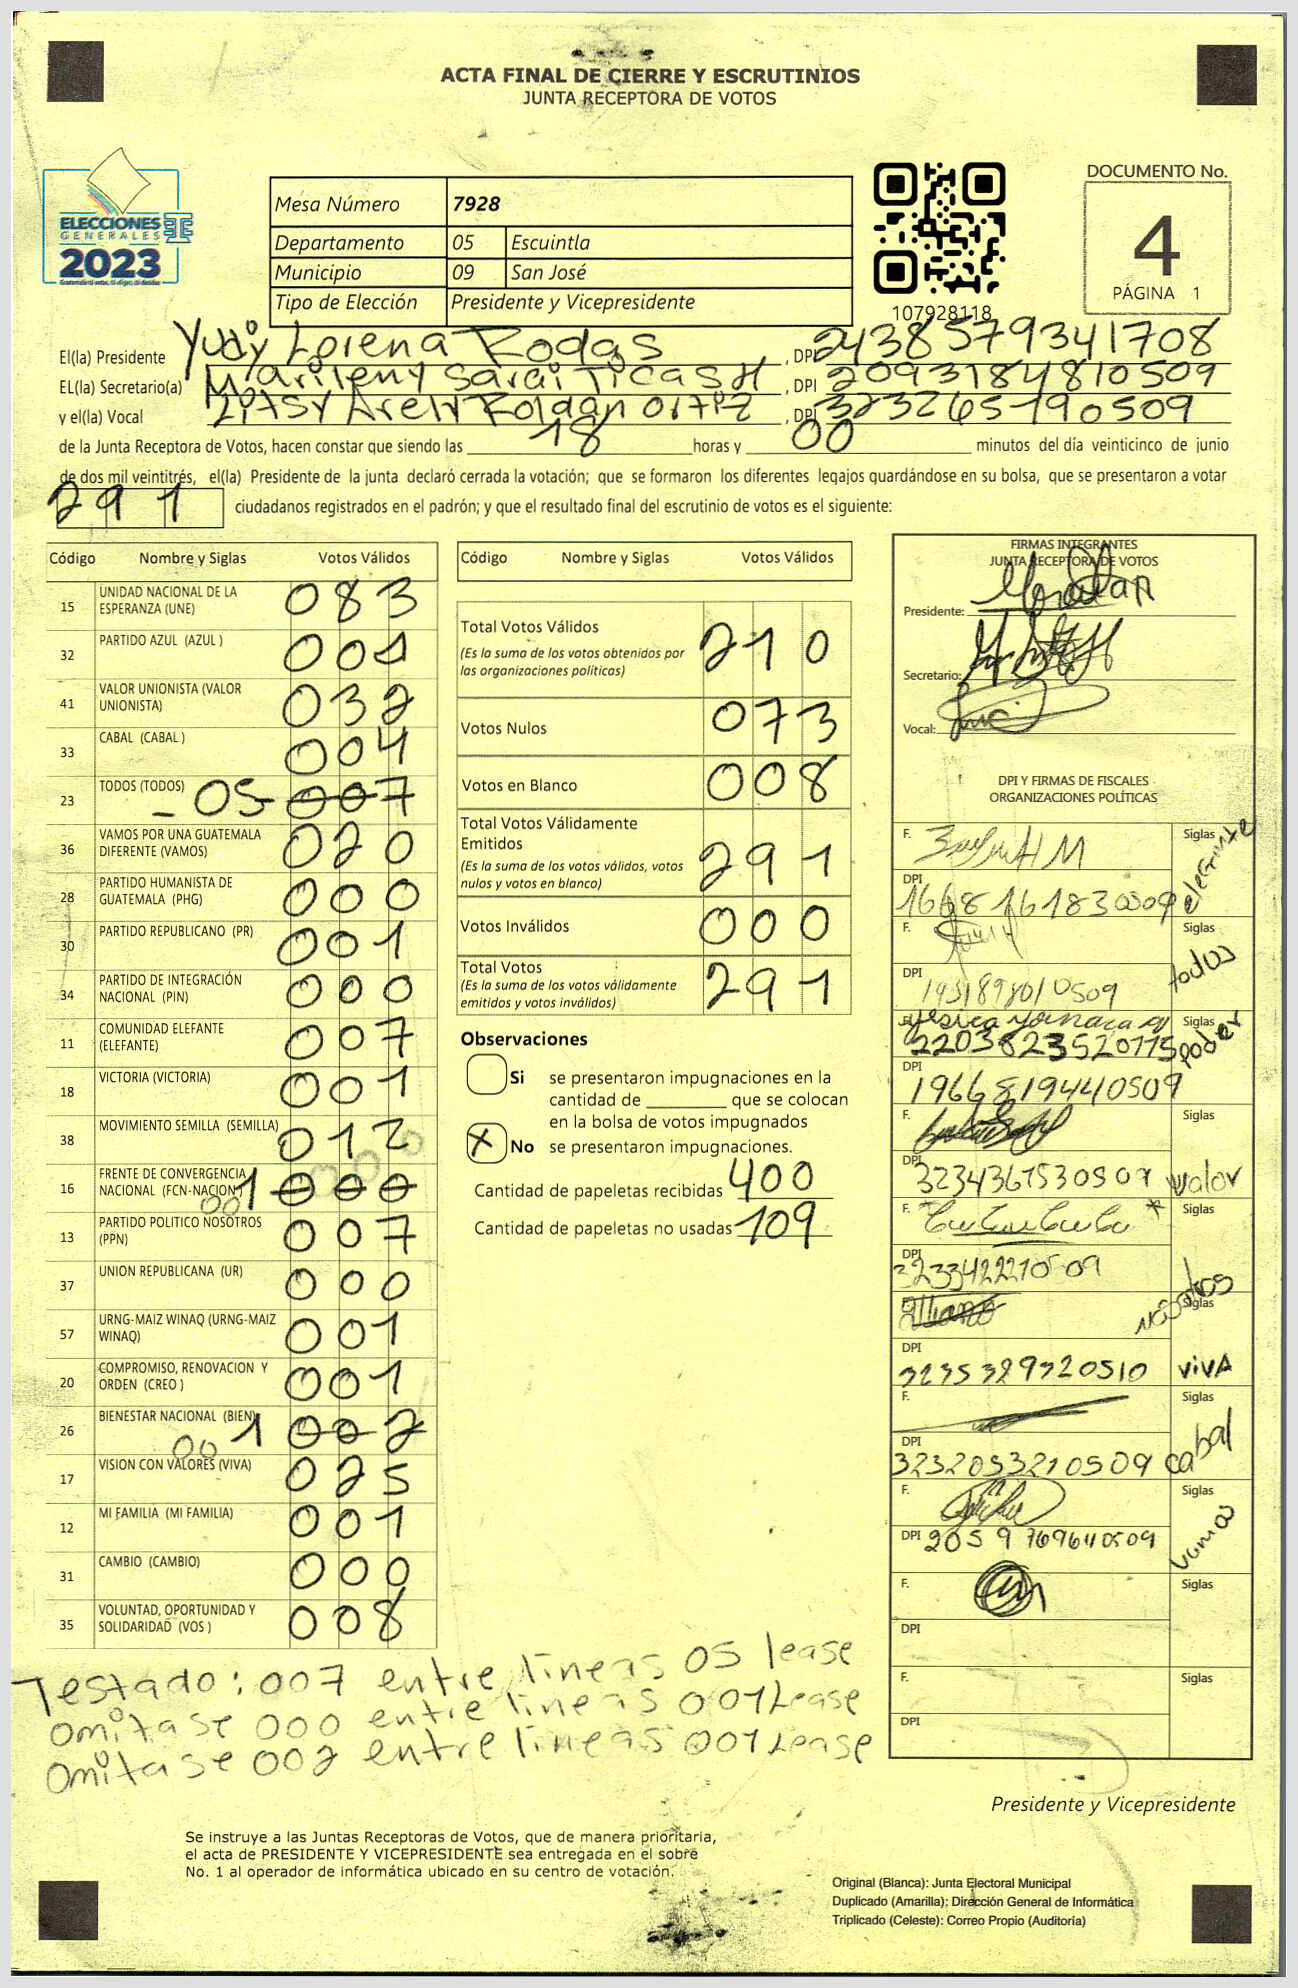 ACTA FINAL DE CIERRE Y ESCRUTINIOS
JUNTA RECEPTORA DE VOTOS
ELECCIONES
GENERALES
2023
Mesa Número 7928
Departamento 05 Escuintla
Municipio 09 San José
Tipo de Elección Presidente y Vicepresidente
107928118
DOCUMENTO No.
4
PÁGINA 1
El(la) Presidente Yudy Lorena Rodas, DPI 2438579341708
EL(la) Secretario(a) Marileny Sarai Ticas H, DPI 2093184810509
y el(la) Vocal Litsy Arely Roldan Ortiz, DPI 3232651190509
de la Junta Receptora de Votos, hacen constar que siendo las 18 horas y 00 minutos del día veinticinco de junio
de dos mil veintitrés, el(la) Presidente de la junta declaró cerrada la votación; que se formaron los diferentes legajos guardándose en su bolsa, que se presentaron a votar
291 ciudadanos registrados en el padrón; y que el resultado final del escrutinio de votos es el siguiente:
Código Nombre y Siglas Votos Válidos
15 UNIDAD NACIONAL DE LA ESPERANZA (UNE) 083
32 PARTIDO AZUL (AZUL ) 001
41 VALOR UNIONISTA (VALOR UNIONISTA) 032
33 CABAL (CABAL ) 004
23 TODOS (TODOS) - 05 007
36 VAMOS POR UNA GUATEMALA DIFERENTE (VAMOS) 020
28 PARTIDO HUMANISTA DE GUATEMALA (PHG) 000
30 PARTIDO REPUBLICANO (PR) 001
34 PARTIDO DE INTEGRACIÓN NACIONAL (PIN) 000
11 COMUNIDAD ELEFANTE (ELEFANTE) 007
18 VICTORIA (VICTORIA) 001
38 MOVIMIENTO SEMILLA (SEMILLA) 012
16 FRENTE DE CONVERGENCIA NACIONAL (FCN-NACION) 001 000
13 PARTIDO POLITICO NOSOTROS (PPN) 007
37 UNION REPUBLICANA (UR) 000
57 URNG-MAIZ WINAQ (URNG-MAIZ WINAQ) 001
20 COMPROMISO, RENOVACION Y ORDEN (CREO ) 001
26 BIENESTAR NACIONAL (BIEN) 001 002
17 VISION CON VALORES (VIVA) 025
12 MI FAMILIA (MI FAMILIA) 001
31 CAMBIO (CAMBIO) 000
35 VOLUNTAD, OPORTUNIDAD Y SOLIDARIDAD (VOS ) 008
Código Nombre y Siglas Votos Válidos
Total Votos Válidos 210
(Es la suma de los votos obtenidos por
las organizaciones políticas)
Votos Nulos 073
Votos en Blanco 008
Total Votos Válidamente
Emitidos 291
(Es la suma de los votos válidos, votos
nulos y votos en blanco)
Votos Inválidos 000
Total Votos 291
(Es la suma de los votos válidamente
emitidos y votos inválidos)
Observaciones
Si se presentaron impugnaciones en la
cantidad de ________ que se colocan
en la bolsa de votos impugnados
X No se presentaron impugnaciones.
Cantidad de papeletas recibidas 400
Cantidad de papeletas no usadas 109
FIRMAS INTEGRANTES
JUNTA RECEPTORA DE VOTOS
Presidente:
Secretario:
Vocal:
DPI Y FIRMAS DE FISCALES
ORGANIZACIONES POLÍTICAS
F. Siglas
DPI 1668161830509
F. Siglas todos
DPI
F. Siglas poder
2203823520115
DPI 1966819440509
F. Siglas
DPI 3234367530509 valor
F. Siglas
DPI 3233422210509
Siglas nosotros
DPI 3235329320510 VIVA
F. Siglas
DPI 3232053210509 cabal
F. Siglas
DPI 2059769640509 vamos
F. Siglas
DPI
F. Siglas
DPI
Testado: 007 entre lineas 05 lease
omitase 000 entre lineas 001 Lease
omitase 002 entre lineas 001 Lease
Presidente y Vicepresidente
Se instruye a las Juntas Receptoras de Votos, que de manera prioritaria,
el acta de PRESIDENTE Y VICEPRESIDENTE sea entregada en el sobre
No. 1 al operador de informática ubicado en su centro de votación.
Original (Blanca): Junta Electoral Municipal
Duplicado (Amarilla): Dirección General de Informática
Triplicado (Celeste): Correo Propio (Auditoría)